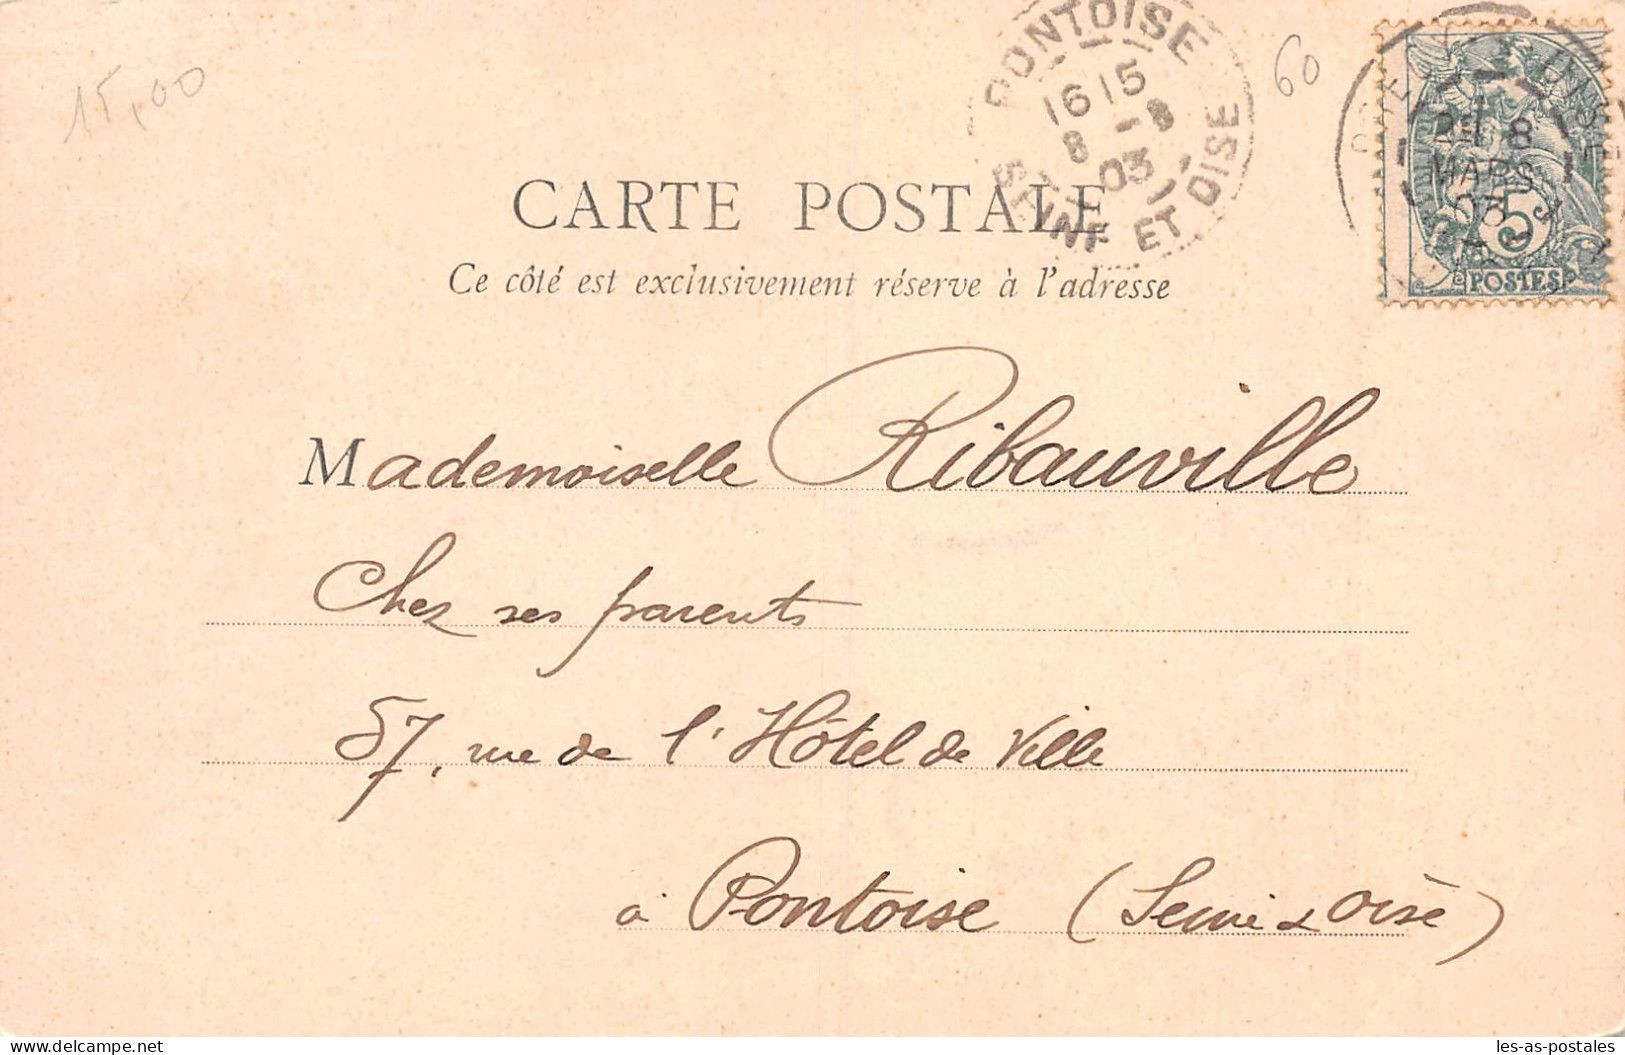 15,00
60
PONTOISE
16 15
8 -3
03
SEINE ET OISE
8
MARS
03
5
POSTES
CARTE POSTALE
Ce côté est exclusivement réservé à l'adresse
Mademoiselle Ribauville
Chez ses parents
57, rue de l'Hôtel de Ville
à Pontoise (Seine & Oise)
les-as-postales.com